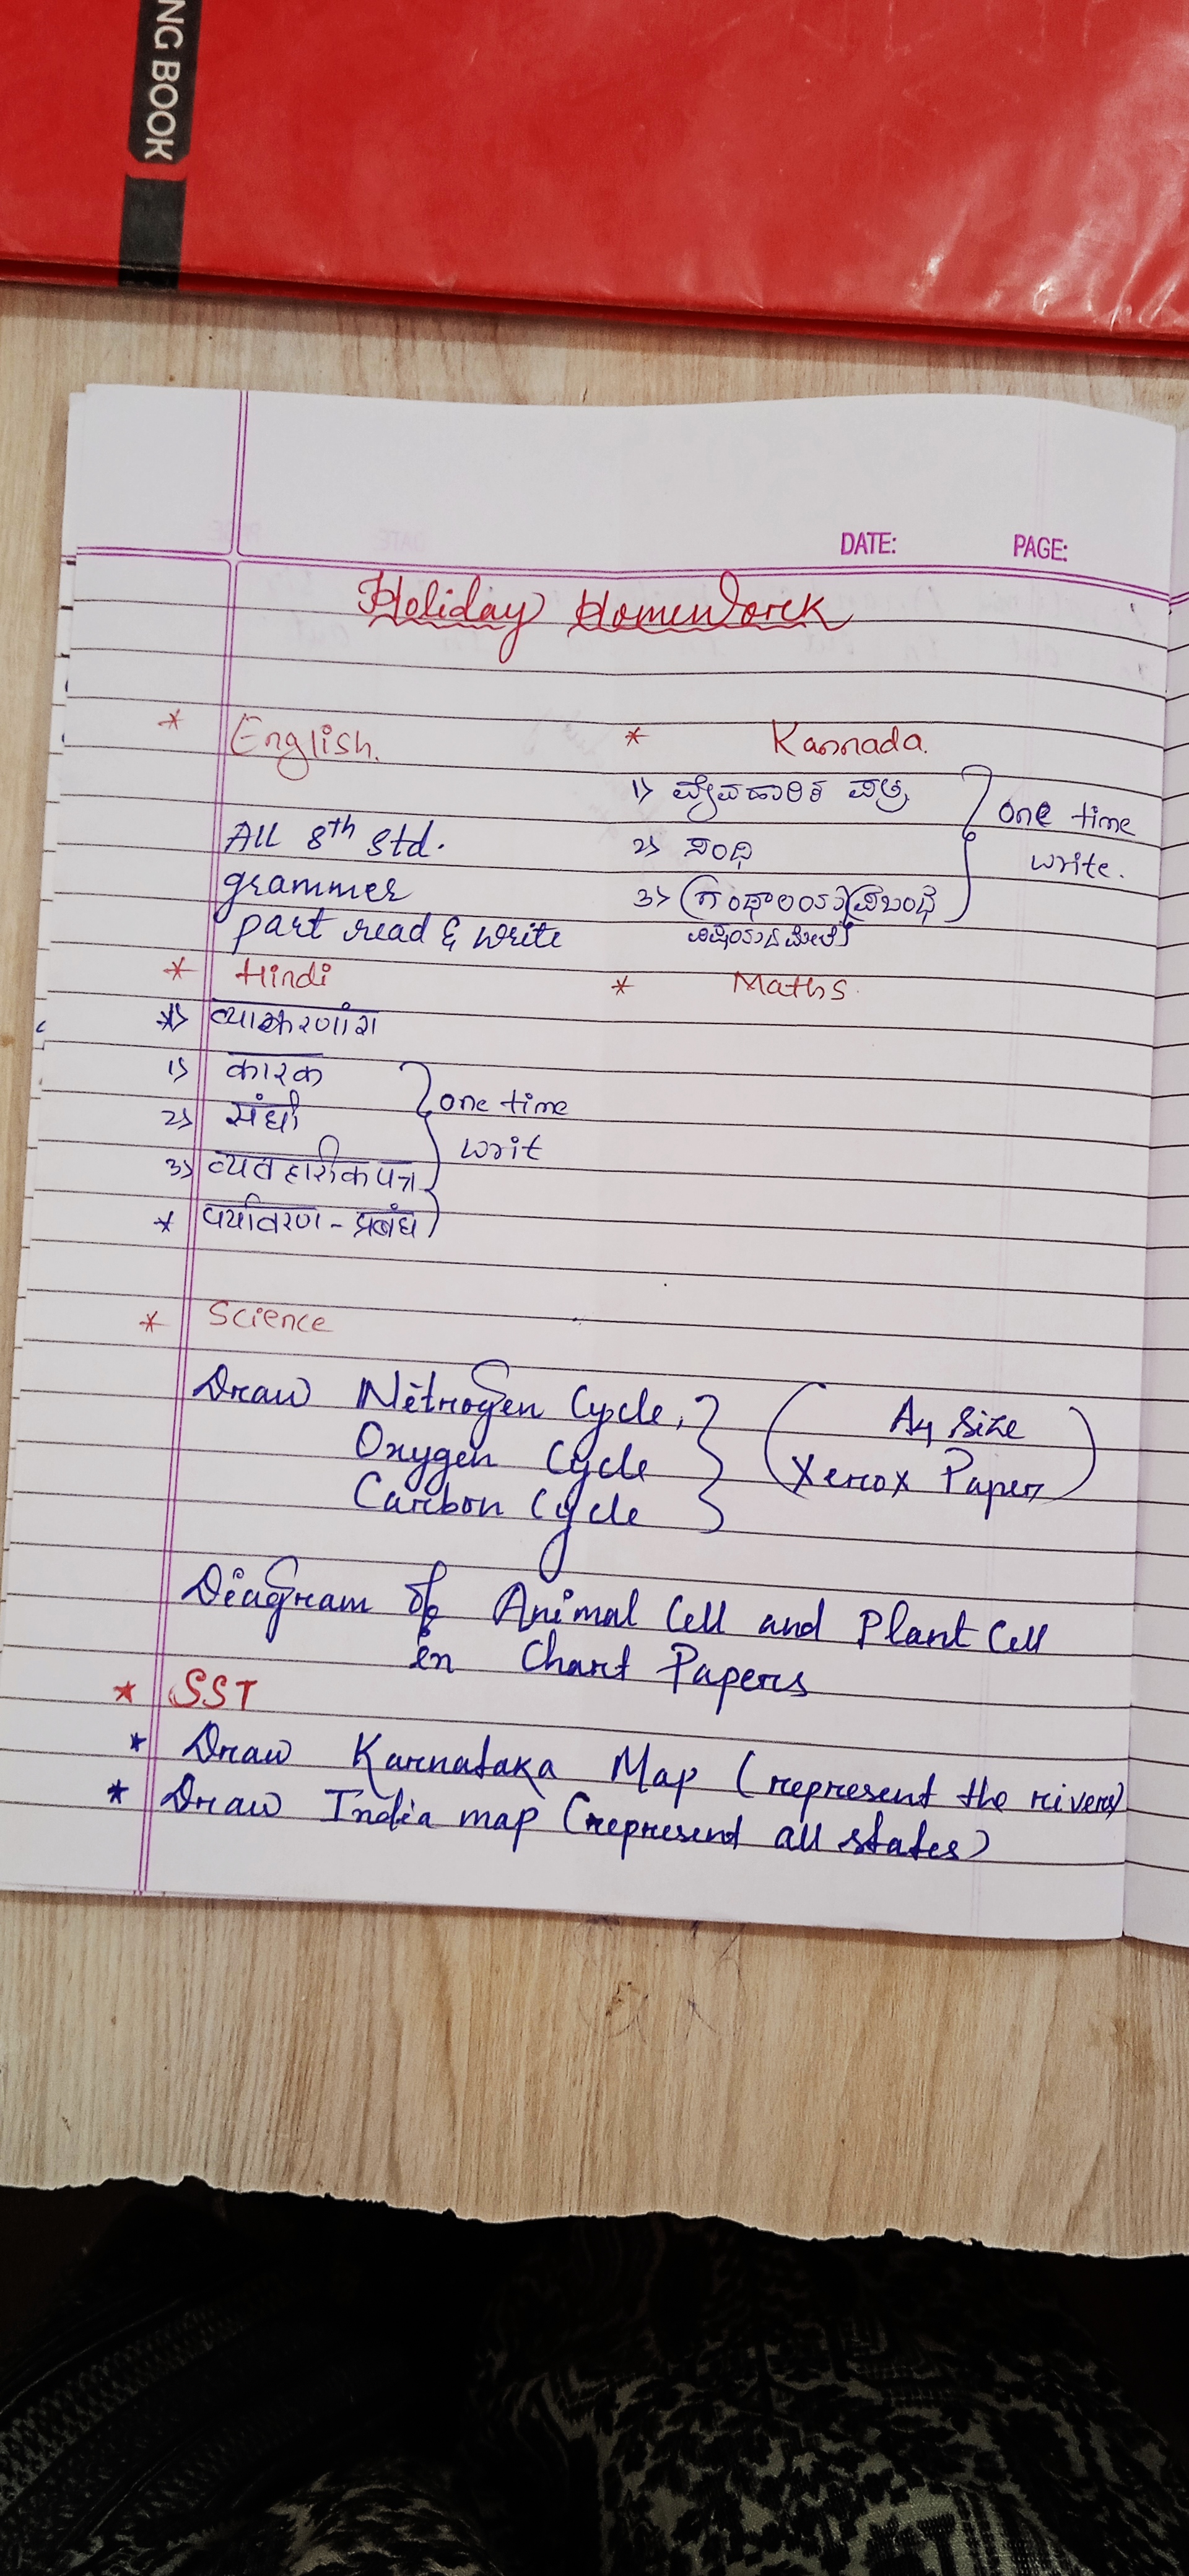 NG BOOK
DATE: PAGE:
Holiday Homework
* English.
All 8th std.
grammer
part read & write
* Kannada.
1> ವ್ಯೆವಹಾರಿಕ ಪತ್ರ
2> ಸಂಧಿ
3> (ಗ್ರಂಥಾಲಯ) ಪ್ರಬಂಧ
one time
write.
* Hindi
*> व्याकरणांश
1> कारक
2> संधी
3> व्यवहारीक पत्र
* पर्यावरण - प्रबंध
one time
writ
* Maths.
* Science
Draw Nitrogen Cycle,
Oxygen Cycle
Carbon Cycle
(A4 Size
Xerox Paper)
Diagram of Animal Cell and Plant Cell
in Chart Papers
* SST
* Draw Karnataka Map (represent the rivers)
* Draw India map (represend all states)